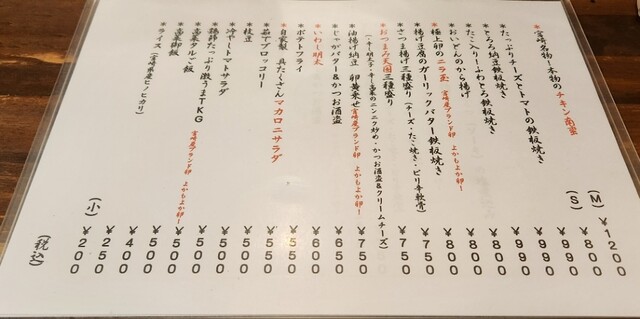 ＊宮崎名物！本物のチキン南蛮 (M) ￥1200
(S) ￥800
＊たっぷりチーズとトマトの鉄板焼き ￥990
＊とろろ納豆鉄板焼き ￥990
＊たこ入り！ふわとろ鉄板焼き ￥900
＊おいどんのから揚げ ￥800
＊極上卵のニラ玉 宮崎産ブランド卵 よかもよか卵！ ￥800
＊揚げ豆腐のガーリックバター鉄板焼き ￥750
＊さつま揚げ三種盛り（チーズ・たこ焼き・ピリ辛軟骨） ￥750
＊おつまみ天国三種盛り
（辛子明太子・辛し高菜のニンニク炒め・かつお酒盗＆クリームチーズ）
＊油揚げ納豆 卵黄来せ 宮崎産ブランド卵 よかもよか卵！ ￥750
＊じゃがバター＆かつお酒盗 ￥650
＊いわし明太 ￥600
＊ポテトフライ ￥500
＊自家製 具たくさんマカロニサラダ ￥550
＊茹でブロッコリー ￥500
＊枝豆 ￥500
＊冷やしトマトサラダ ￥500
＊鶏節たっぷり激うまTKG 宮崎産ブランド卵 よかもよか卵！ ￥500
＊高菜タルご飯 ￥500
＊高菜御飯 ￥400
＊ライス（宮崎県産ヒノヒカリ） ￥250
(小) ￥200
(税込)